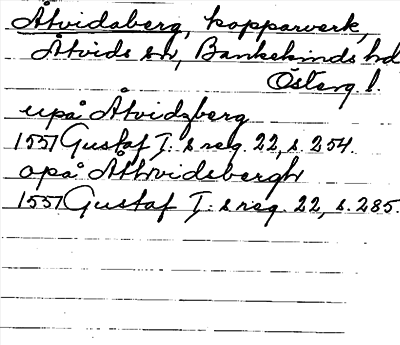 Åtvidaberg, kopparverk,
Åtvids sn, Bankekinds hd
Österg. l.
upå Åtvidzberg
1551 Gustaf I: s reg. 22, s. 254.
opå Åthvidsbergh
1551 Gustaf I: s reg. 22, s. 285.